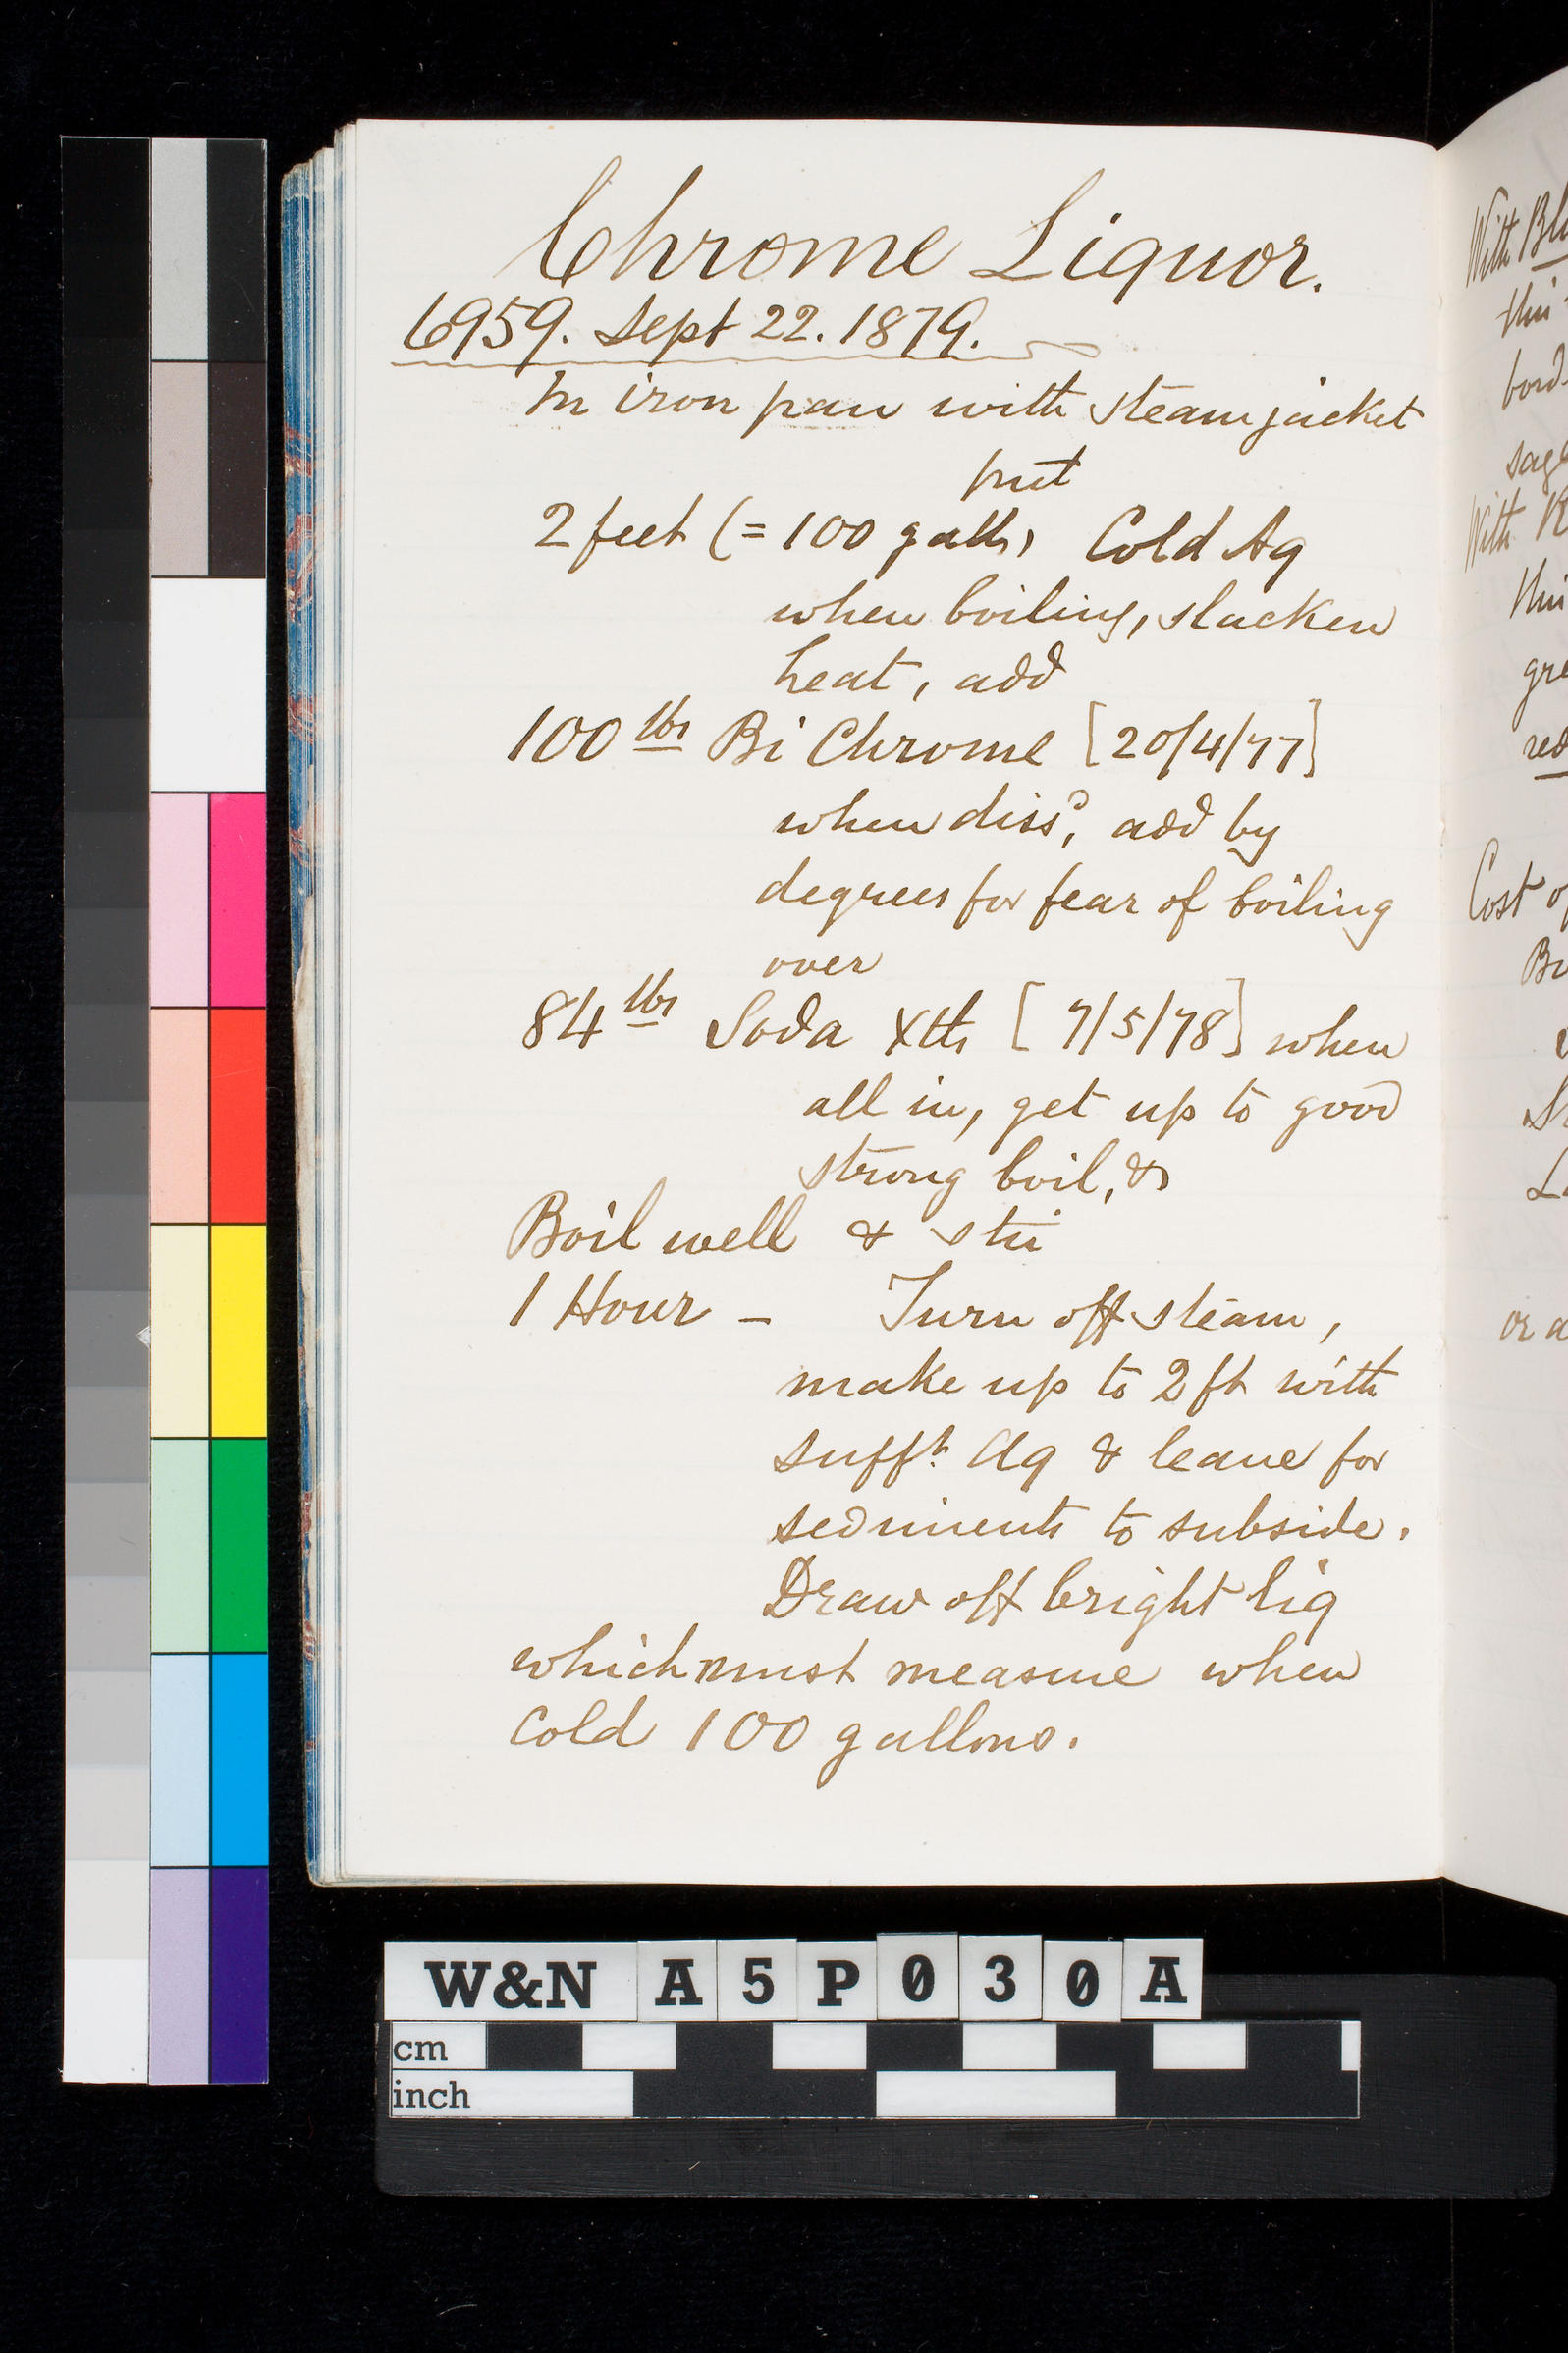 Chrome Liquor.
6959. Sept 22. 1879.
In iron pan with steam jacket
put
2 feet (= 100 galls) Cold Aq
when boiling, slacken
heat, add
100 lbs Bi Chrome [20/4/77]
when dissd, add by
degrees for fear of boiling
over
84 lbs Soda Xtls [7/5/78] when
all in, get up to good
strong boil, &
Boil well & stir
1 Hour - Turn off steam,
make up to 2 ft with
sufft. Aq & leave for
sediments to subside.
Draw off bright liq
which must measure when
cold 100 gallons.
With
this
With
this
Cost
or a
W&N A5P030A
cm
inch